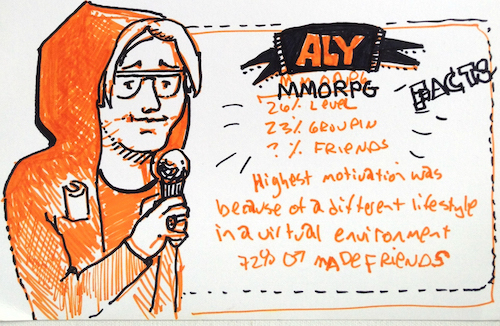 ALY
MMORPG
FACTS
MMORPG
26% LEVEL
23% GROUPIN
? % FRIENDS
Highest motivation was
because of a different lifestyle
in a virtual environment
72% OT MADE FRIENDS